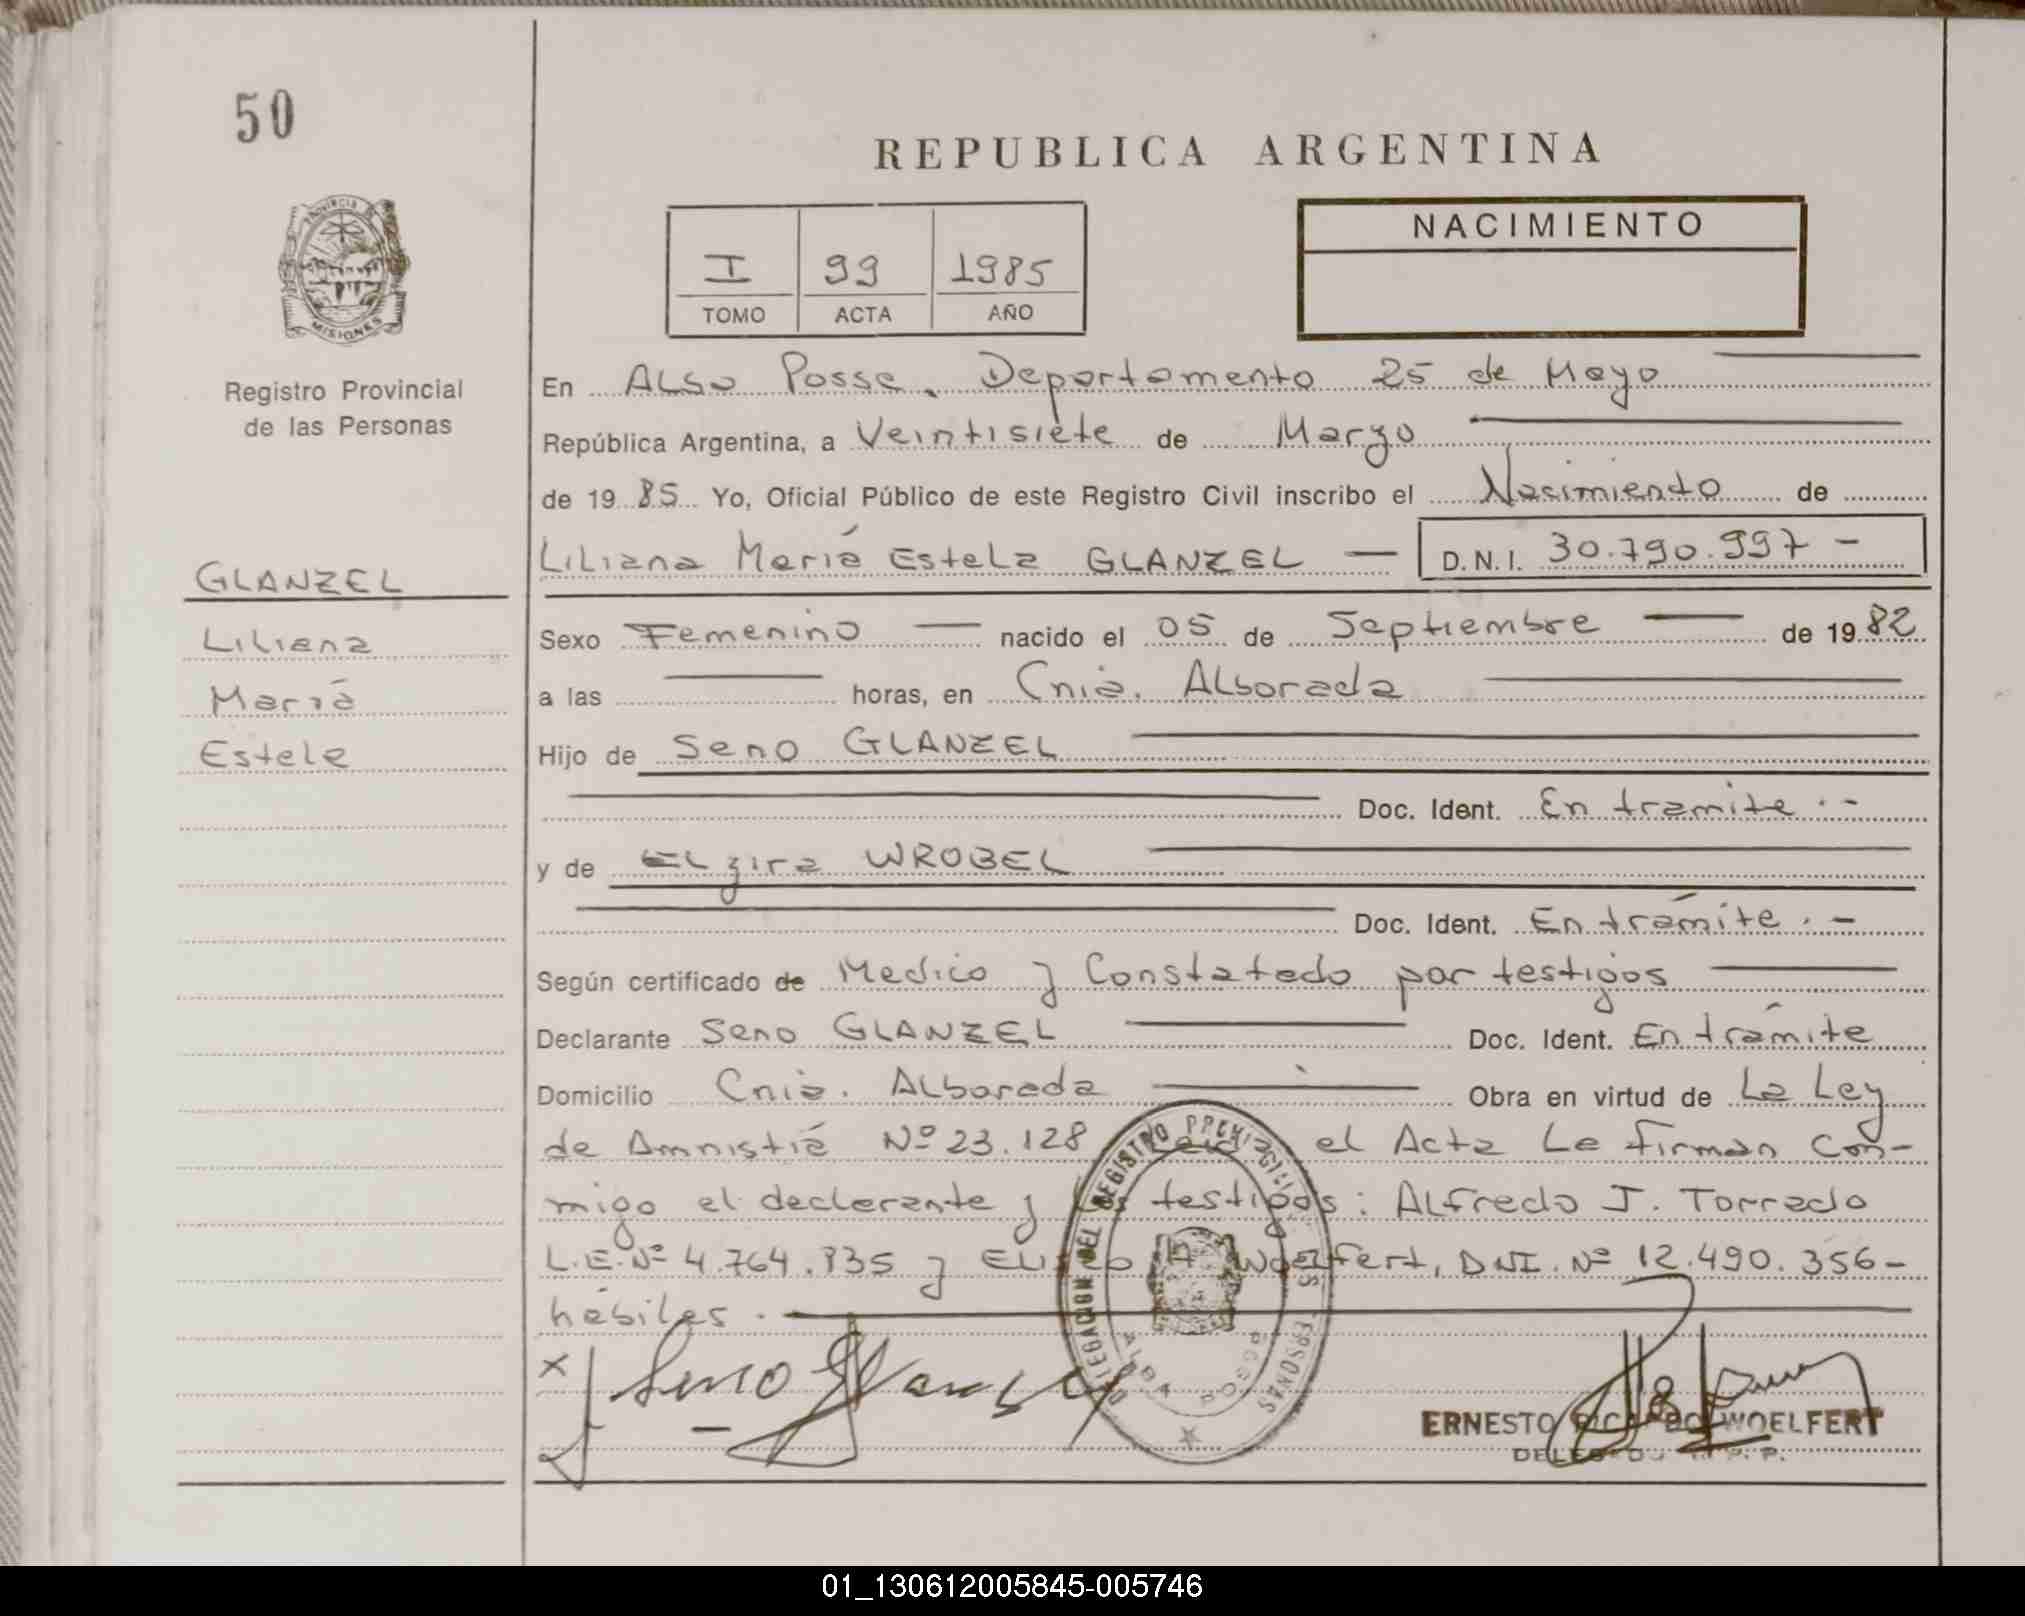 50
REPUBLICA ARGENTINA
PROVINCIA DE
MISIONES
Registro Provincial
de las Personas
I 99 1985
TOMO ACTA AÑO
NACIMIENTO
En Alba Posse, Departamento 25 de Mayo
República Argentina, a Veintisiete de Marzo
de 1985 Yo, Oficial Público de este Registro Civil inscribo el Nacimiento de
Liliana María Estela GLANZEL — D.N.I. 30.790.997 -
GLANZEL
Liliana
María
Estela
Sexo Femenino — nacido el 05 de Septiembre — de 1982
a las — horas, en Cnia. Alborada
Hijo de Seno GLANZEL
Doc. Ident. En tramite.-
y de Elzira WROBEL
Doc. Ident. En trámite.-
Según certificado de Medico y Constatado por testigos
Declarante Seno GLANZEL Doc. Ident. En trámite
Domicilio Cnia. Alborada Obra en virtud de La Ley
de Amnistía Nº 23.128 el Acta Le firman con-
migo el declarante y los testigos: Alfredo J. Torrado
L.E. Nº 4.764.835 y Eliseo A. Woelfert, DNI. Nº 12.490.356-
hábiles.
X Seno Glanzel
DELEGACION DEL REGISTRO PROVINCIAL DE LAS PERSONAS
ALBA POSSE
ERNESTO RICARDO WOELFERT
DELEGADO R. P. P.
01_130612005845-005746